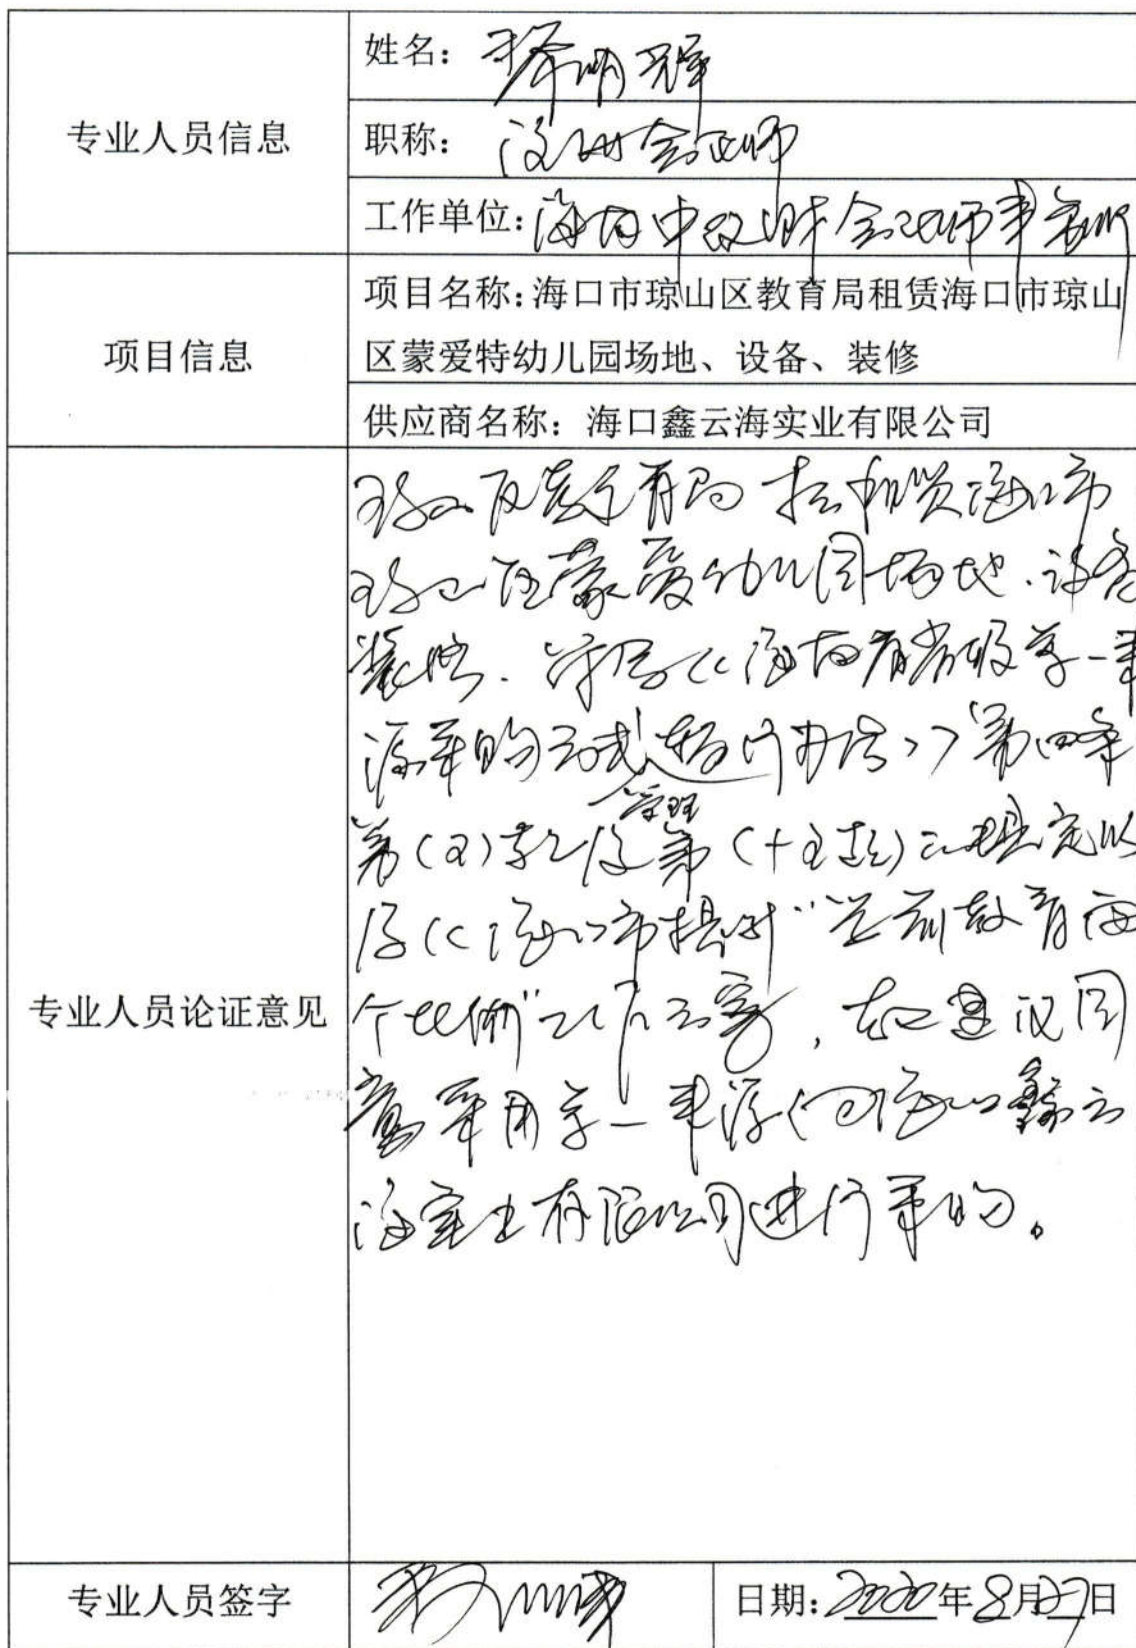 专业人员信息
姓名：明辉
职称：注册会计师
工作单位：海南中财会计师事务所
项目信息
项目名称：海口市琼山区教育局租赁海口市琼山
区蒙爱特幼儿园场地、设备、装修
供应商名称：海口鑫云海实业有限公司
专业人员论证意见
琼山区教育局租赁海口市
琼山区蒙爱幼儿园场地、设备
装修、符合《海南省省级单一来
源采购方式管理暂行办法》第四条
第款及第规定以
及《海口市提升“学前教育两
个比例”工作方案，故建议同
意采用单一来源向海口鑫云
海实业有限公司进行采购。
专业人员签字
日期：2020年8月27日